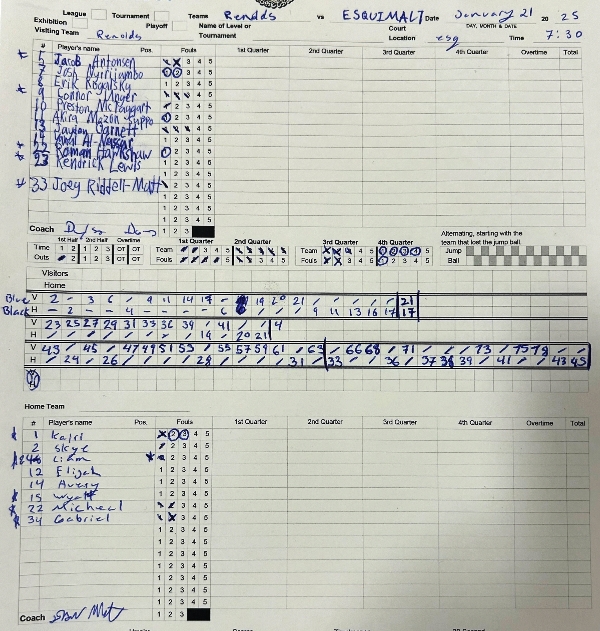 League Tournament Teams Renolds vs ESQUIMALT Date January 21 20 25
Exhibition Playoff Name of Level or Court DAY, MONTH & DATE
Visiting Team Renolds Tournament Location esq Time 7:30
# Player's name Pos. Fouls 1st Quarter 2nd Quarter 3rd Quarter 4th Quarter Overtime Total
5 Jacob Antonsen 3 4 5
7 Josh 1 2 3 4 5
8 Erik Rogalsky 1 2 3 4 5
9 Connor Unger 4 5
10 Preston McTaggart 1 2 3 4 5
11 Akira 1 2 3 4 5
13 Jayton Garnett 4 5
14 Al-Nassar 1 2 3 4 5
22 Roman Hawkshaw 1 2 3 4 5
23 Kendrick Lewis 1 2 3 4 5
33 Joey Riddell-Matt 2 3 4 5
1 2 3 4 5
1 2 3 4 5
Coach 1 2 3
1st Half 2nd Half Overtime 1st Quarter 2nd Quarter 3rd Quarter 4th Quarter Alternating, starting with the
team that lost the jump ball.
Time 1 2 1 2 3 OT OT Team Team 1 2 3 4 5 Jump
Outs 2 1 2 3 OT OT Fouls Fouls 1 2 3 4 5 Ball
Visitors
Home
Blue V 2 - 3 6 - 9 11 14 17 - 19 20 21 21
Black H - 2 - - 4 - - - - 6 9 11 13 16 17 17
V 23 25 27 29 31 33 36 39 / 41 / / 4
H / / / / / / / / 19 / 20 21
V 43 / 45 / 47 49 51 53 / 55 57 59 61 / 63 / 66 68 / 71 / / / 73 / 75 78
H / 24 / 26 / / / / 28 / / / / 31 / 33 / / 36 / 37 38 39 / 41 / / 43 45
Home Team
# Player's name Pos. Fouls 1st Quarter 2nd Quarter 3rd Quarter 4th Quarter Overtime Total
1 Kajri 2 3 4 5
2 Skye 2 3 4 5
Liam 2 3 4 5
12 Elijah 1 2 3 4 5
14 Avery 1 2 3 4 5
15 Wyatt 1 2 3 4 5
22 Micheal 3 4 5
34 Gabriel 3 4 5
1 2 3 4 5
1 2 3 4 5
1 2 3 4 5
1 2 3 4 5
1 2 3 4 5
1 2 3 4 5
Coach 1 2 3